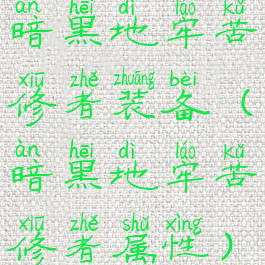 àn hēi dì láo kǔ
暗黑地牢苦
xiū zhě zhuāng bèi
修者装备（
àn hēi dì láo kǔ
暗黑地牢苦
xiū zhě shǔ xìng
修者属性）